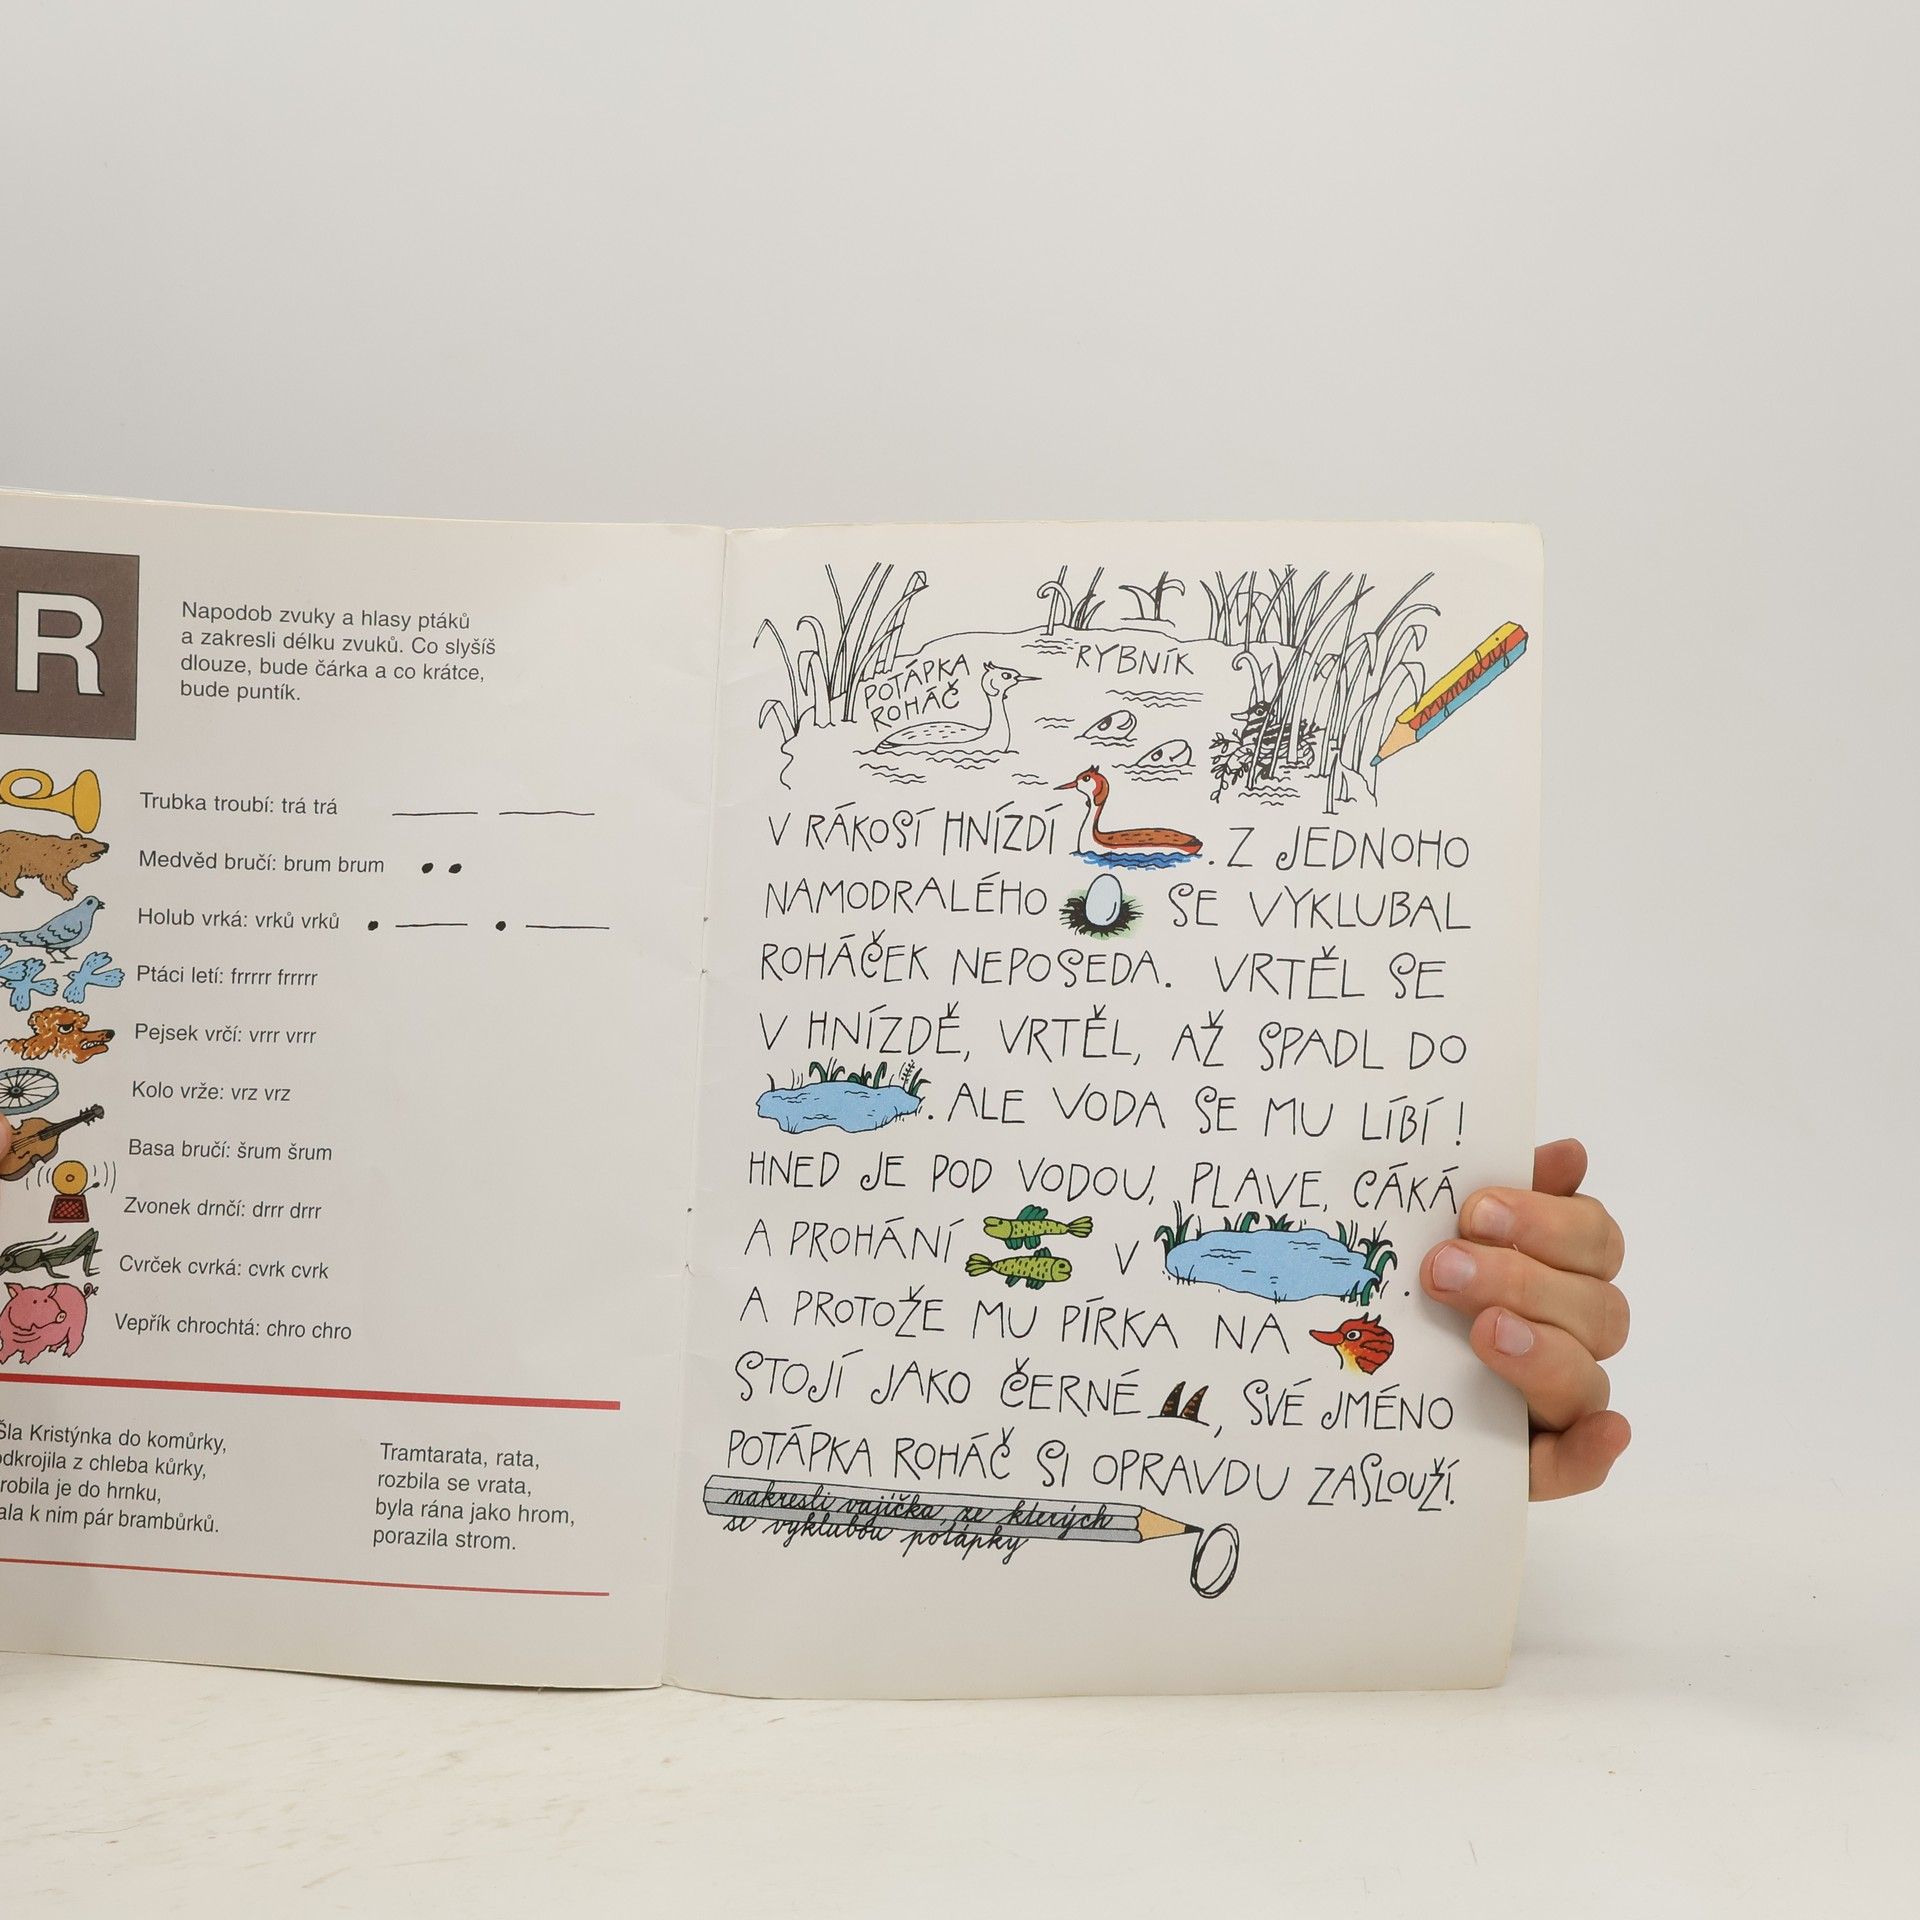 R
Napodob zvuky a hlasy ptáků
a zakresli délku zvuků. Co slyšíš
dlouze, bude čárka a co krátce,
bude puntík.
Trubka troubí: trá trá
Medvěd bručí: brum brum
Holub vrká: vrků vrků
Ptáci letí: frrrrr frrrrr
Pejsek vrčí: vrrr vrrr
Kolo vrže: vrz vrz
Basa bručí: šrum šrum
Zvonek drnčí: drrr drrr
Cvrček cvrká: cvrk cvrk
Vepřík chrochtá: chro chro
Šla Kristýnka do komůrky,
odkrojila z chleba kůrky,
robila je do hrnku,
ala k nim pár brambůrků.
Tramtarata, rata,
rozbila se vrata,
byla rána jako hrom,
porazila strom.
POTÁPKA
ROHÁČ
RYBNÍK
vymaluj
V RÁKOSÍ HNÍZDÍ . Z JEDNOHO
NAMODRALÉHO SE VYKLUBAL
ROHÁČEK NEPOSEDA. VRTĚL SE
V HNÍZDĚ, VRTĚL, AŽ SPADL DO
. ALE VODA SE MU LÍBÍ !
HNED JE POD VODOU, PLAVE, CÁKÁ
A PROHÁNÍ V .
A PROTOŽE MU PÍRKA NA
STOJÍ JAKO ČERNÉ , SVÉ JMÉNO
POTÁPKA ROHÁČ SI OPRAVDU ZASLOUŽÍ.
nakresli vajíčka, ze kterých
se vyklubou potápky